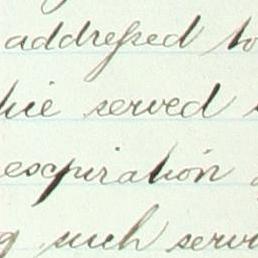 addressed to
be served
expiration
such serv